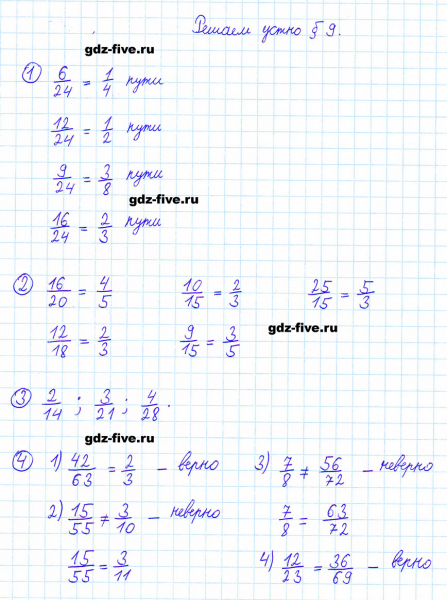 Решаем устно § 9.
gdz-five.ru
① 6/24 = 1/4 пути
12/24 = 1/2 пути
9/24 = 3/8 пути
gdz-five.ru
16/24 = 2/3 пути
② 16/20 = 4/5 10/15 = 2/3 25/15 = 5/3
12/18 = 2/3 9/15 = 3/5
gdz-five.ru
③ 2/14 ; 3/21 ; 4/28 .
gdz-five.ru
④ 1) 42/63 = 2/3 – верно 3) 7/8 ≠ 56/72 – неверно
2) 15/55 ≠ 3/10 – неверно 7/8 = 63/72
15/55 = 3/11 4) 12/23 = 36/69 – верно